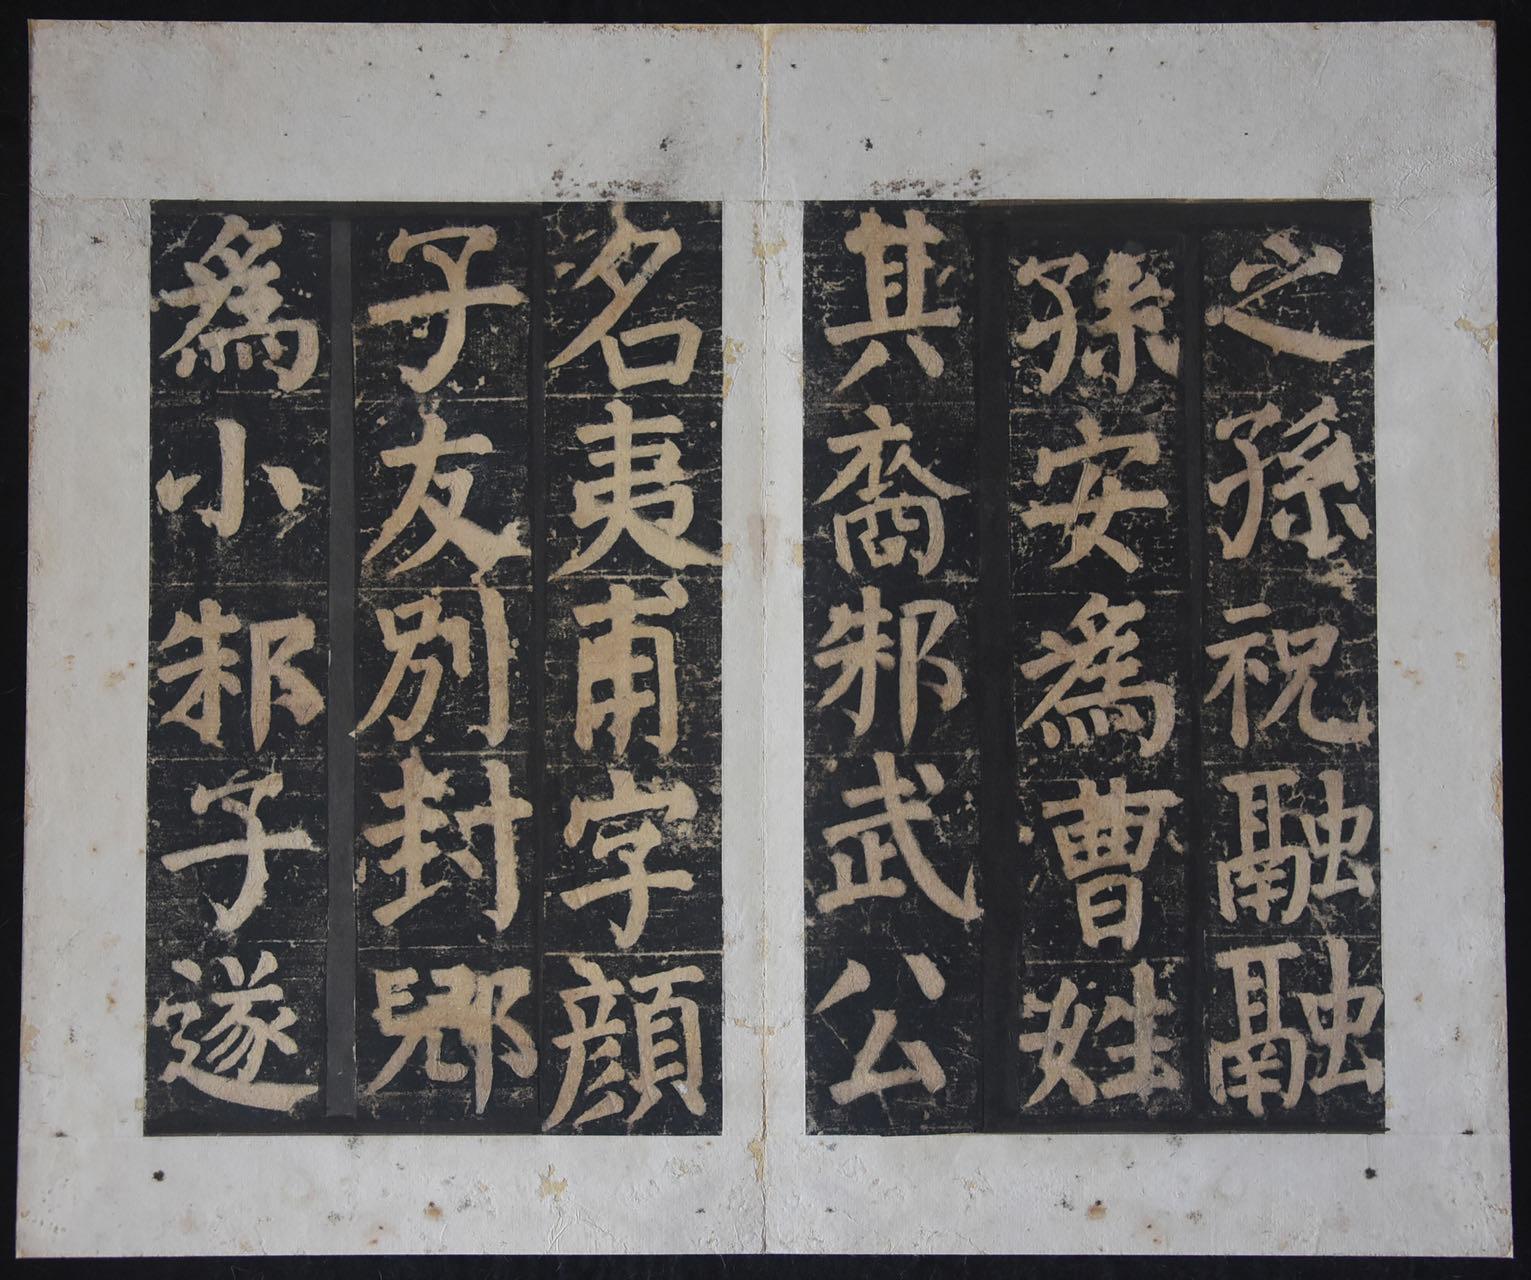 之孫祝融融
孫安為曹姓
其裔邾武公
名夷甫字顏
子友別封郳
為小邾子遂